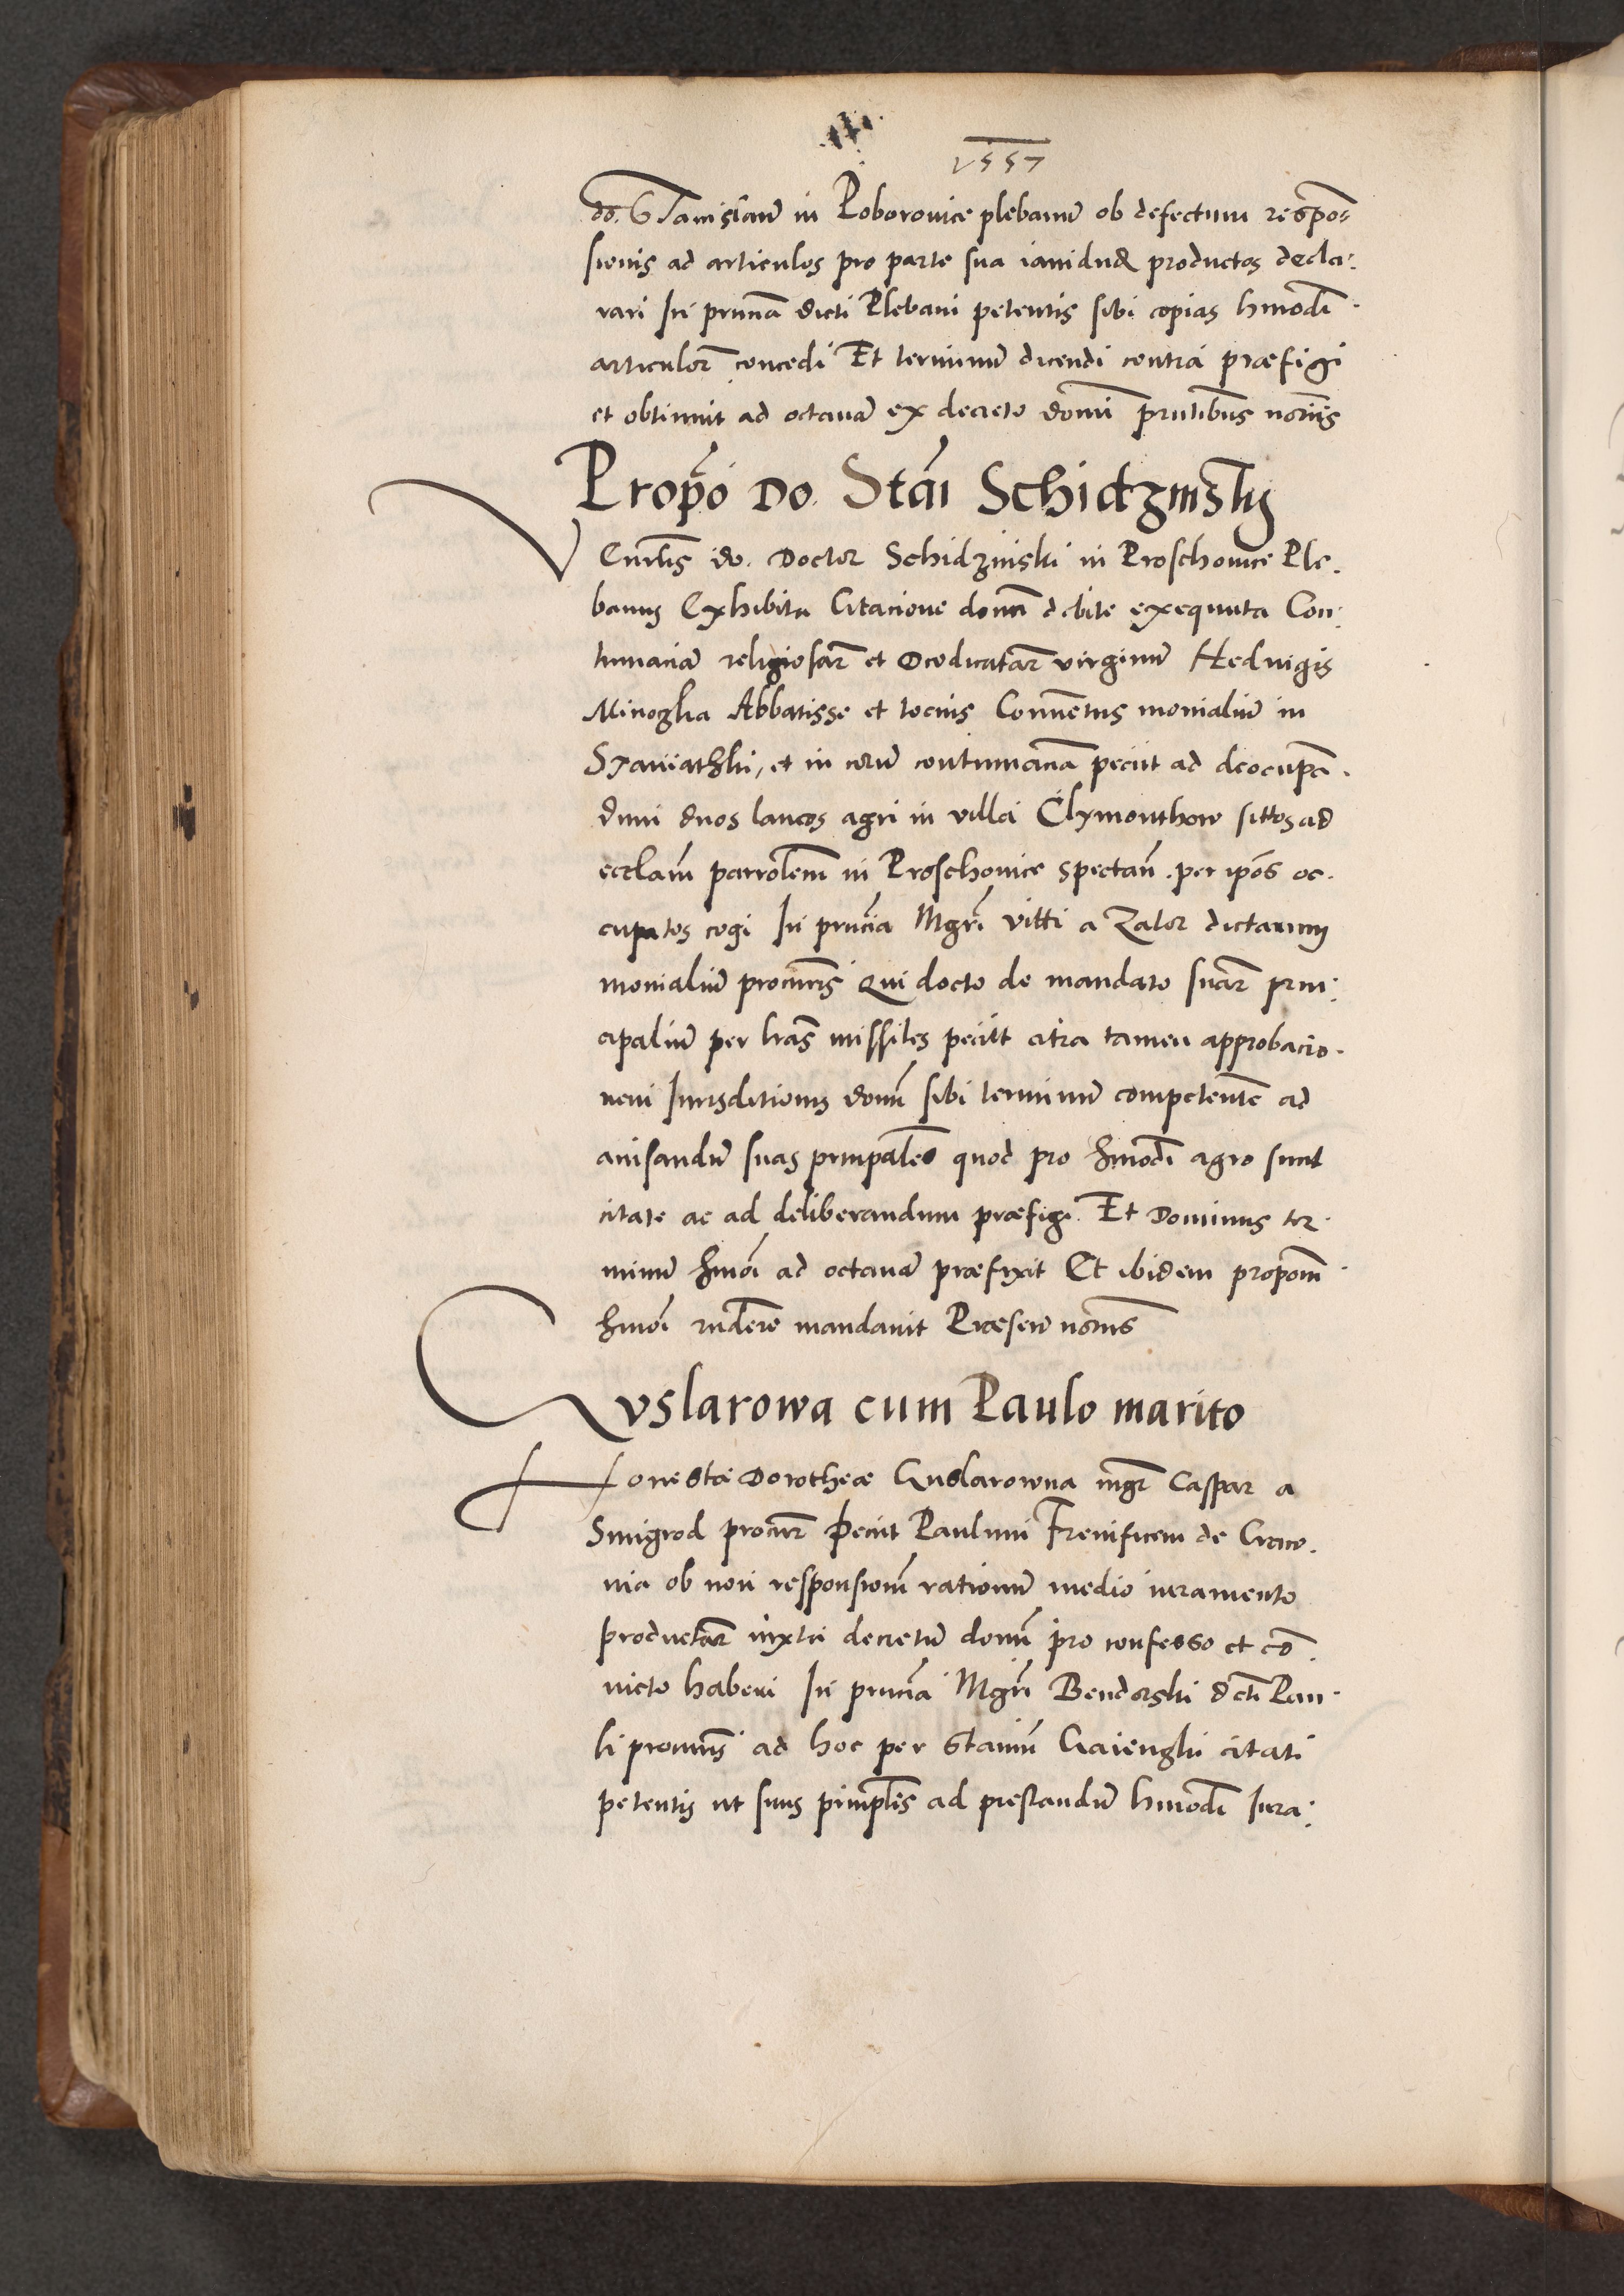 1557
do. Stanislaū in Poborovice plebanū ob defectum respo͞n=
sionis ad articulos pro parte sua iamdudꝫ productos decla:
rari In prn̄cia dicti Plebani petentis sibi copias hmōdi
articulor̄ concedi Et terminū dicendi contra præfigi
et obtinuit ad octavā ex decreto domī prn̄tibus notn̄is
Prop̄o Do. Stāi Schidzinsky
Vēn̄lis do. Doctor Schidzinski in Proschovice Ple.
banus Exhibita Citacione domī debite exequuta Con:
tumaciā religiosar̄ et Deodicatar̄ virginū Hedvigis
Minogka Abbatisse et tocius Conventus monialiū in
Staniathki, et in earū contumaciā peciit ad deocupan.
dum duos laneos agri in villa Clymonthow sittos ad
eccl̄am parrōlem in Proschovice spectan̄. per ip̄os oc.
cupatos cogi In prn̄cia Mgr̄i Vitti a Zator dictarum
monialiū procur̄is Qui docto de mandato suar̄ prin:
cipaliū per lr̄as missiles peciit citra tamen approbacio.
nem Jurisditionis domī sibi terminū competentē ad
avisandū suas prinpales quod pro hmōdi agro sunt
citate ac ad deliberandum præfigi. Et Dominus ter.
minū hmōi ad octavā præfixit Et ibidem propōnī
hmōi rn̄dere mandavit Præsen̄ notn̄is
Guslarowa cum Paulo marito
Honestæ Dorotheæ Guslarowna mgr̄ Caspar a
Smigrod procur̄ Peciit Paulum Frenificem de Craco.
via ob non responsionē rationū medio iuramento
productar̄ iuxta decretū domī pro confesso et cō.
victo haberi In prn̄cia Mgr̄i Bendorski dcti Pau.
li procur̄is ad hoc per Stanīū citati
petentis ut suus prinplis ad prestandū hmōdi Iura: